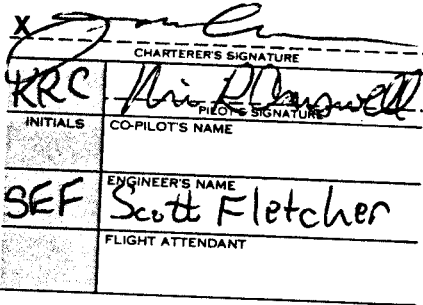 X
CHARTERER'S SIGNATURE
KRC
PILOT'S SIGNATURE
INITIALS CO-PILOT'S NAME
ENGINEER'S NAME
SEF Scott Fletcher
FLIGHT ATTENDANT